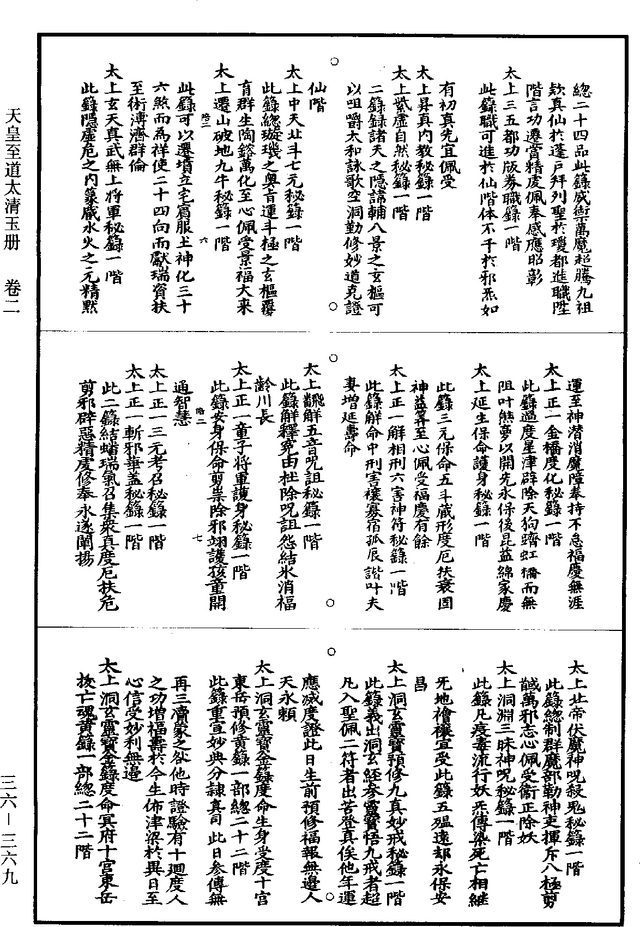 天皇至道太清玉册　卷二
三六—三六九
總二十四品此籙威禦萬魔超騰九祖
欵真仙於蓬戸拜列聖於瓊都進職陞
階言功遷賞精虔佩奉感應昭彰
太上三五都功版券職籙一階
此籙職可進於仙階体不干於邪炁如
有初真先宜佩受
太上昇真內教秘籙一階
太上紫虛自然秘籙一階
二籙錄諸天之隱諱輔八景之玄樞可
以咀嚼太和詠歌空洞勤修妙道克證
仙階
太上中天北斗七元秘籙一階
此籙總璇璣之奥旨運斗極之玄樞覆
育群生陶鎔萬化至心佩受景福大來
太上遷山破地九牛秘籙一階
此籙可以遷墳立宅賓服土神化三十
六煞而為祥使二十四向而獻瑞資扶
至術溥濟群倫
太上玄天真武無上將軍秘籙一階
此籙隱虛危之內篆威水火之元精默
階二
六
運至神潜消魔障奉持不怠福慶無涯
太上正一金橋度化秘籙一階
此籙過度星津辟除天狗躋虹橋而無
阻叶熊夢以開先永保後昆益綿家慶
太上延生保命護身秘籙一階
此籙三元保命五斗藏形度厄扶衰固
神益筭至心佩受福慶有餘
太上正一解相刑六害神符秘籙一階
此籙解命中刑害禳寡宿孤辰諧叶夫
妻增延壽命
太上飜解五音呪詛秘籙一階
此籙解釋寃由杜除呪詛怨結氷消福
齡川長
太上正一童子將軍護身秘籙一階
此籙安身保命剪祟除邪翊護孩童開
通智慧
太上正一三元考召秘籙一階
太上正一斬邪華蓋秘籙一階
此二籙結蟠瑞氣召集衆真度厄扶危
剪邪辟惡精虔修奉永遂闡揚
階二
七
太上北帝伏魔神呪殺鬼秘籙一階
此籙總制群魔部勒神吏揮斥八極剪
馘萬邪志心佩受衛正除妖
太上洞淵三昧神呪秘籙一階
此籙凡疫毒流行妖炁傳染死亡相繼
死地禬禳宣受此籙五瘟遠却永保安
昌
太上洞玄靈寶預修九真妙戒秘籙一階
此籙義出洞玄經夲靈寶悟九戒者超
凡入聖佩二符者出苦登真俟他年運
應滅度證此日生前預修福報無邊人
天永賴
太上洞玄靈寶金籙度命生身受度十宮
東岳預修黃籙一部總二十二階
此籙重宣妙典分隷真司此日參傳無
再三瀆蒙之欲他時證驗有十迴度人
之功增福壽於今生佈津梁於異日至
心信受妙利無邊
太上洞玄靈寶金籙度命冥府十宮東岳
拔亡魂黃籙一部總二十二階